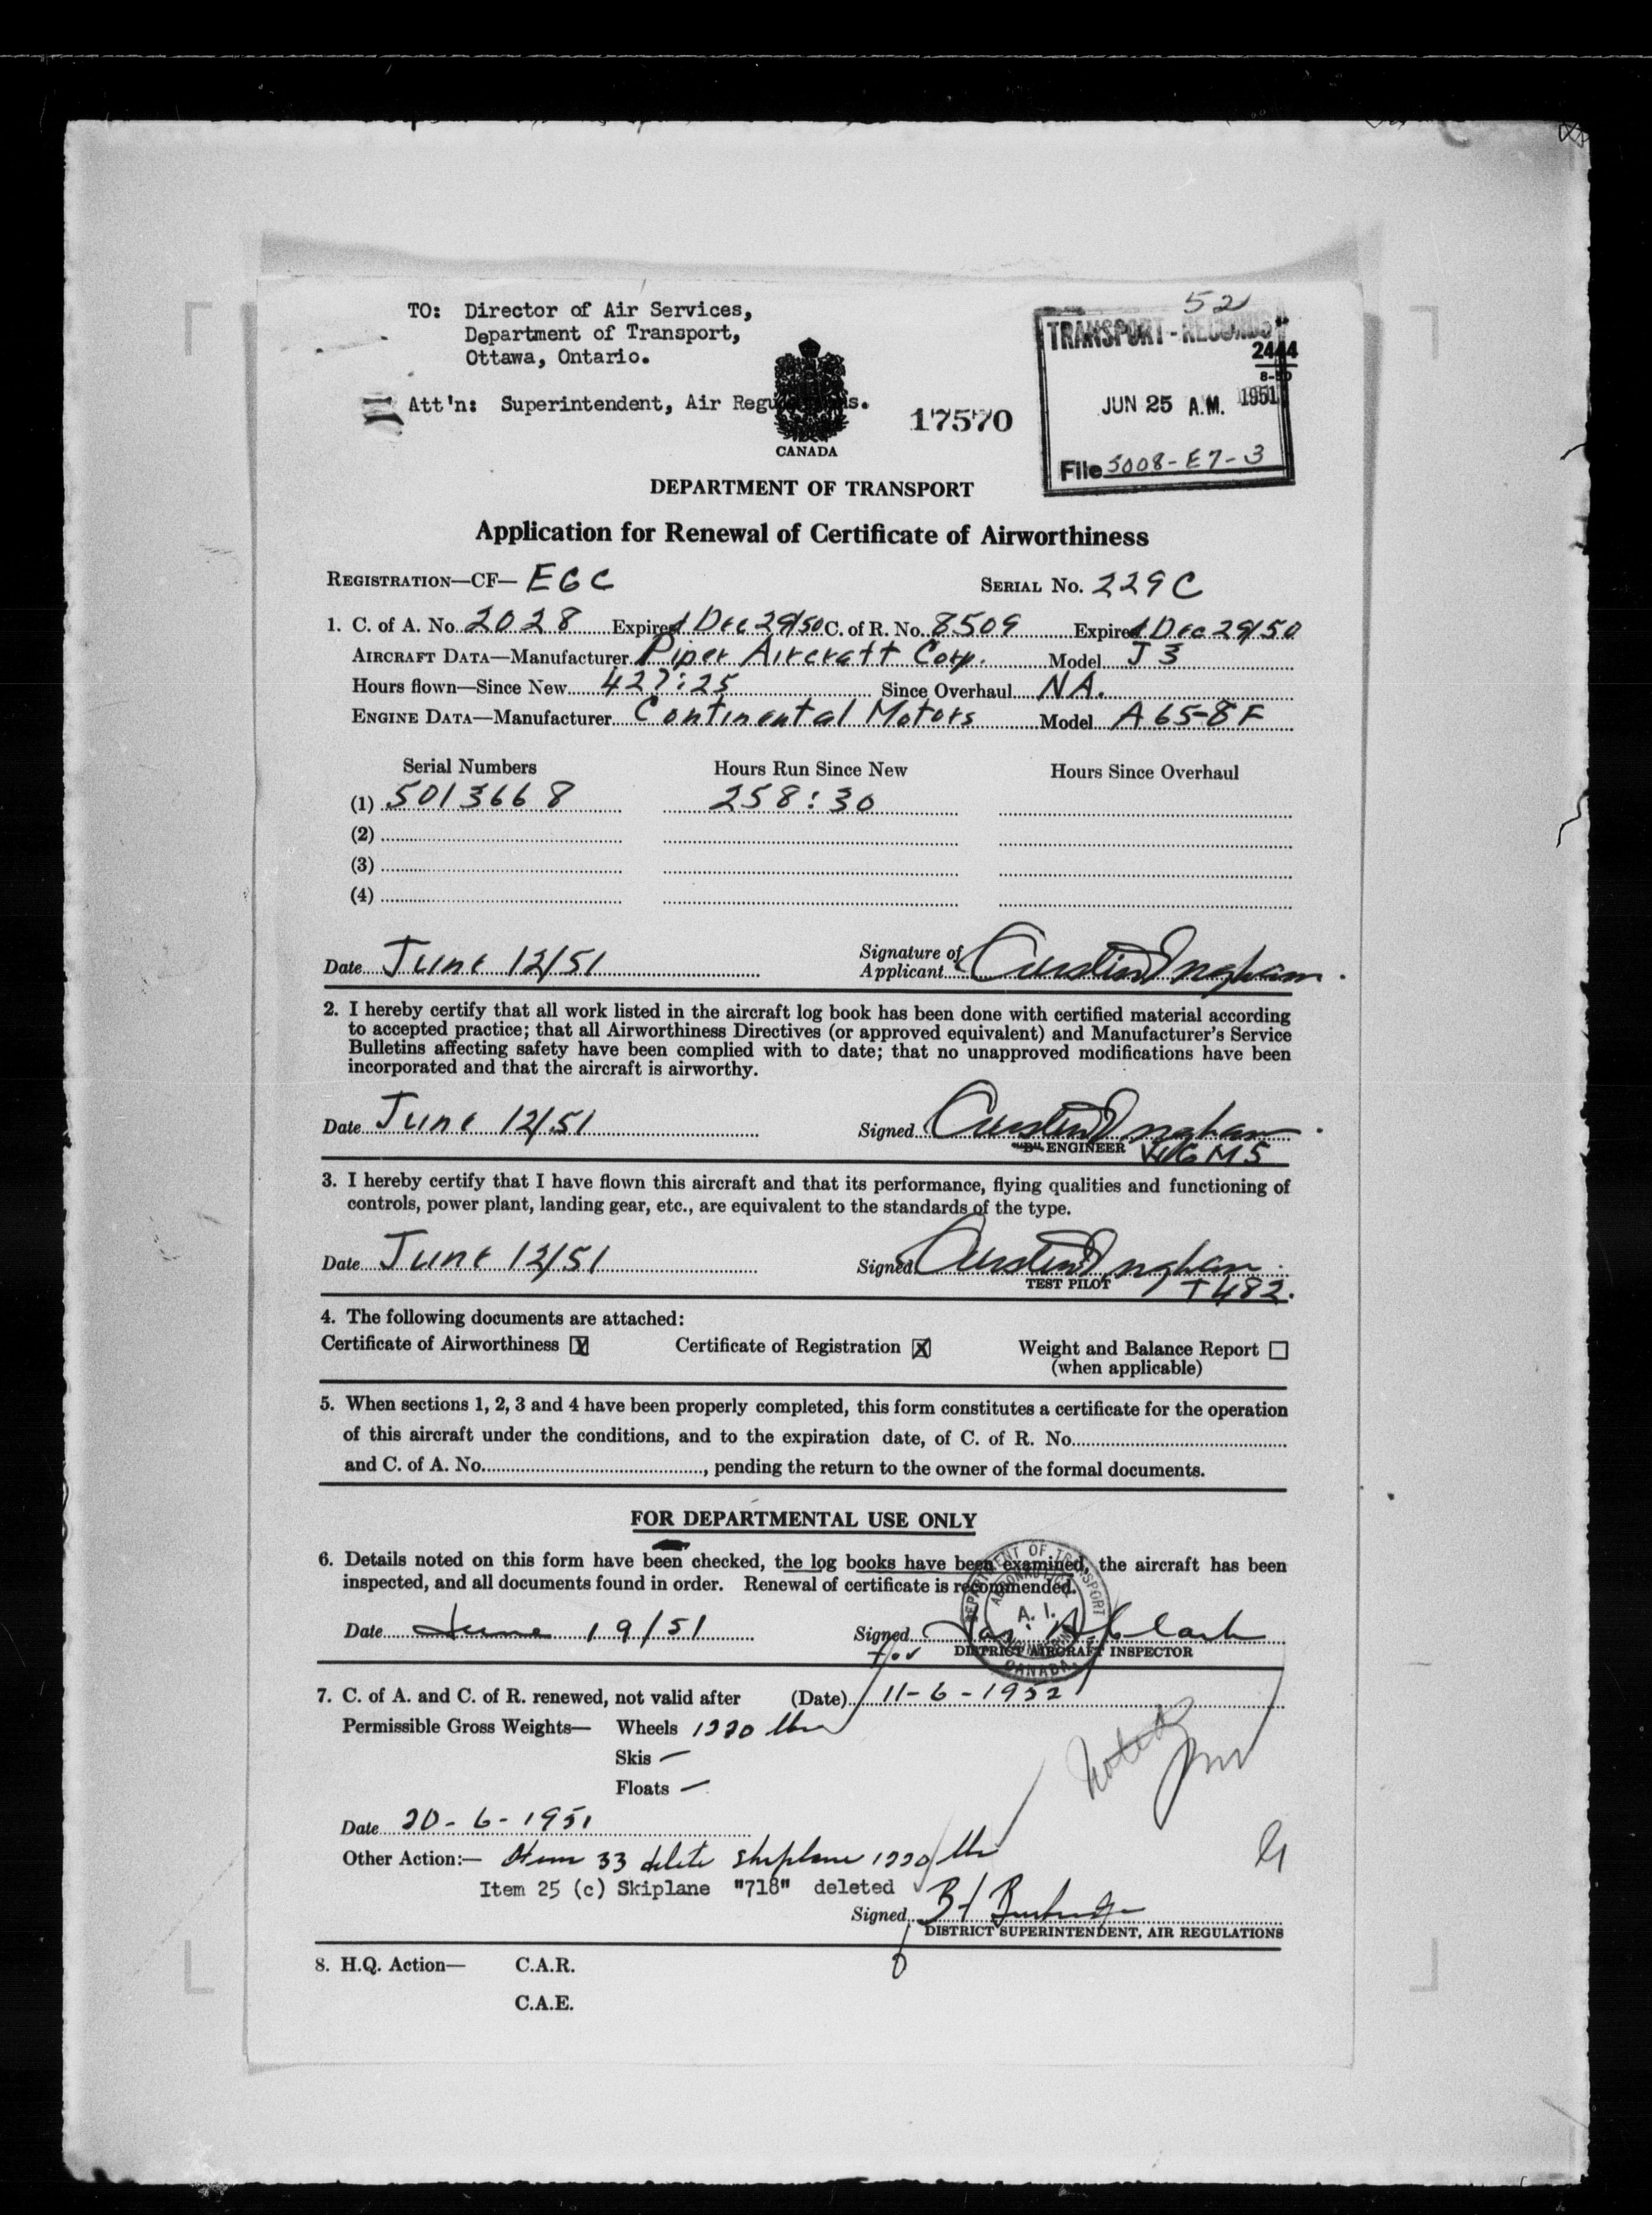 52
TO: Director of Air Services,
Department of Transport,
Ottawa, Ontario.
Att'n: Superintendent, Air
TRANSPORT - RECORDS
2444
8-50
JUN 25 A.M. 1951
File 5008-E7-3
17570
CANADA
DEPARTMENT OF TRANSPORT
Application for Renewal of Certificate of Airworthiness
REGISTRATION—CF— EGC SERIAL No. 229C
1. C. of A. No. 2028 Expires Dec 29/50 C. of R. No. 8509 Expires Dec 29/50
AIRCRAFT DATA—Manufacturer Piper Aircraft Corp. Model J3
Hours flown—Since New 427:25 Since Overhaul NA.
ENGINE DATA—Manufacturer Continental Motors Model A65-8F
Serial Numbers Hours Run Since New Hours Since Overhaul
(1) 5013668 258:30
(2)
(3)
(4)
Date June 12/51 Signature of Applicant Ingham
2. I hereby certify that all work listed in the aircraft log book has been done with certified material according
to accepted practice; that all Airworthiness Directives (or approved equivalent) and Manufacturer's Service
Bulletins affecting safety have been complied with to date; that no unapproved modifications have been
incorporated and that the aircraft is airworthy.
Date June 12/51 Signed Ingham
ENGINEER
3. I hereby certify that I have flown this aircraft and that its performance, flying qualities and functioning of
controls, power plant, landing gear, etc., are equivalent to the standards of the type.
Date June 12/51 Signed Ingham
TEST PILOT T482.
4. The following documents are attached:
Certificate of Airworthiness X Certificate of Registration X Weight and Balance Report
(when applicable)
5. When sections 1, 2, 3 and 4 have been properly completed, this form constitutes a certificate for the operation
of this aircraft under the conditions, and to the expiration date, of C. of R. No.
and C. of A. No. , pending the return to the owner of the formal documents.
FOR DEPARTMENTAL USE ONLY
6. Details noted on this form have been checked, the log books have been examined, the aircraft has been
inspected, and all documents found in order. Renewal of certificate is recommended.
DEPARTMENT OF TRANSPORT
A. I.
CANADA
Date June 19/51 Signed Clark
for DISTRICT AIRCRAFT INSPECTOR
7. C. of A. and C. of R. renewed, not valid after (Date) 11-6-1952
Permissible Gross Weights— Wheels 1220 lbs
Skis —
Floats —
Noted
Date 20-6-1951
Other Action:— Item 33 delete skiplane 1220 lbs
Item 25 (c) Skiplane "718" deleted
Signed
DISTRICT SUPERINTENDENT, AIR REGULATIONS
8. H.Q. Action— C.A.R.
C.A.E.